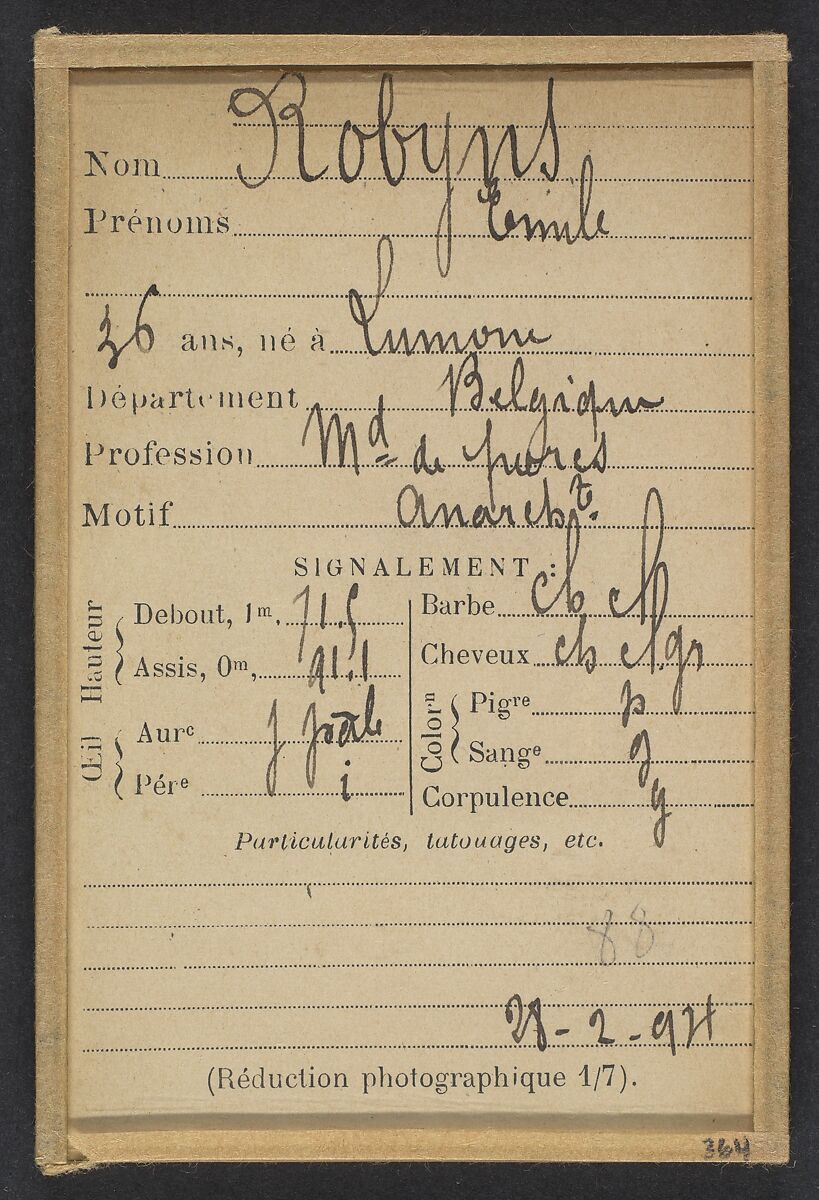 Nom Robyns
Prénoms Emile
36 ans, né à Lumone
Département Belgique
Profession Md de puces
Motif Anarcht.
SIGNALEMENT :
Hauteur
Debout, 1m, 71.5
Assis, 0m, 91.1
Œil
Aurc j pâle
Pére i
Barbe ch M
Cheveux ch M gr
Colorn
Pigre p
Sange g
Corpulence g
Particularités, tatouages, etc.
88
28-2-94
(Réduction photographique 1/7).
364